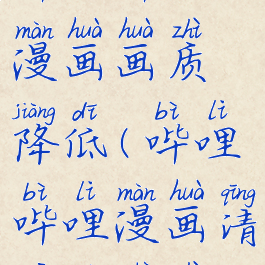 màn huà huà zhì
漫画画质
jiàng dī bì lì
降低(哔哩
bì lì màn huà qīng
哔哩漫画清